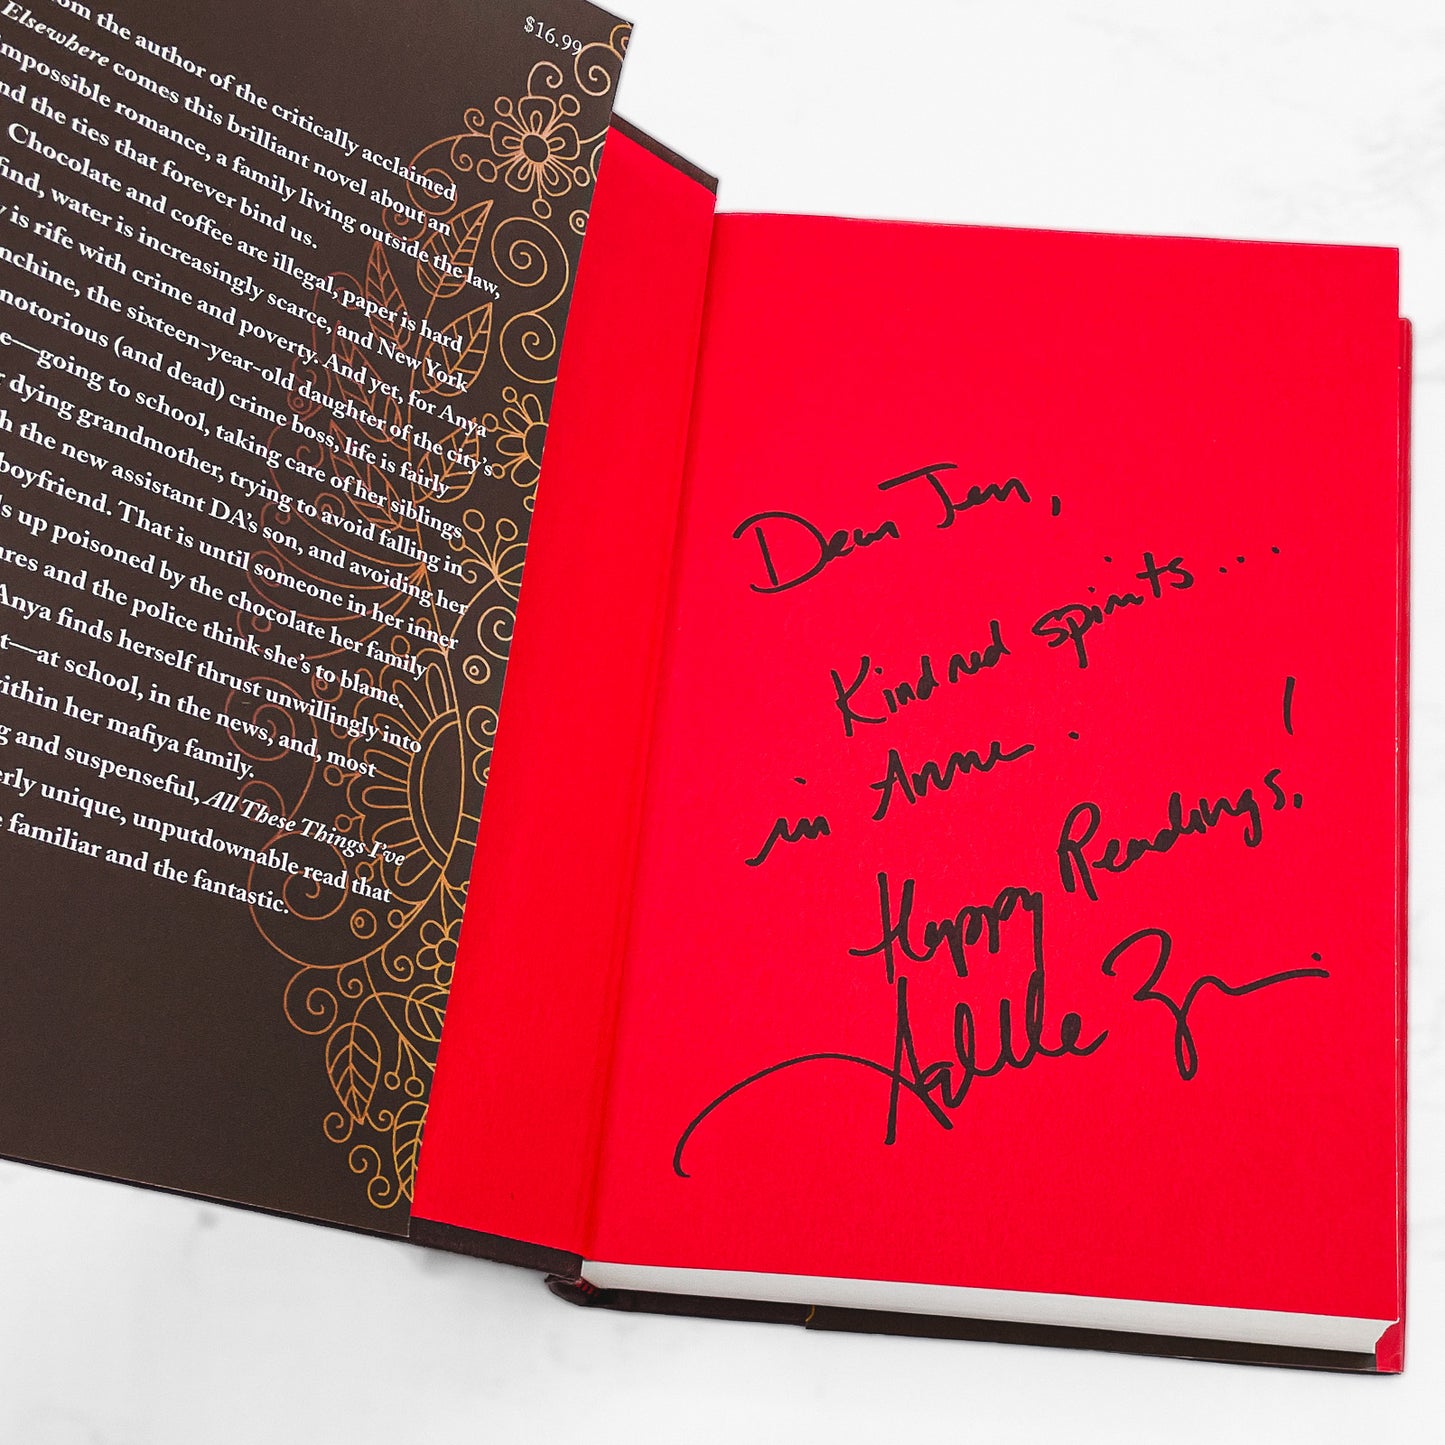 $16.99
om the author of the critically acclaimed
Elsewhere comes this brilliant novel about an
impossible romance, a family living outside the law,
nd the ties that forever bind us.
Chocolate and coffee are illegal, paper is hard
find, water is increasingly scarce, and New York
y is rife with crime and poverty. And yet, for Anya
nchine, the sixteen-year-old daughter of the city's
notorious (and dead) crime boss, life is fairly
e—going to school, taking care of her siblings
r dying grandmother, trying to avoid falling in
h the new assistant DA's son, and avoiding her
boyfriend. That is until someone in her inner
s up poisoned by the chocolate her family
res and the police think she's to blame.
Anya finds herself thrust unwillingly into
t—at school, in the news, and, most
within her mafiya family.
g and suspenseful, All These Things I've
erly unique, unputdownable read that
e familiar and the fantastic.
Dear Jen,
Kindred spirits...
in Anne.
Happy Readings!